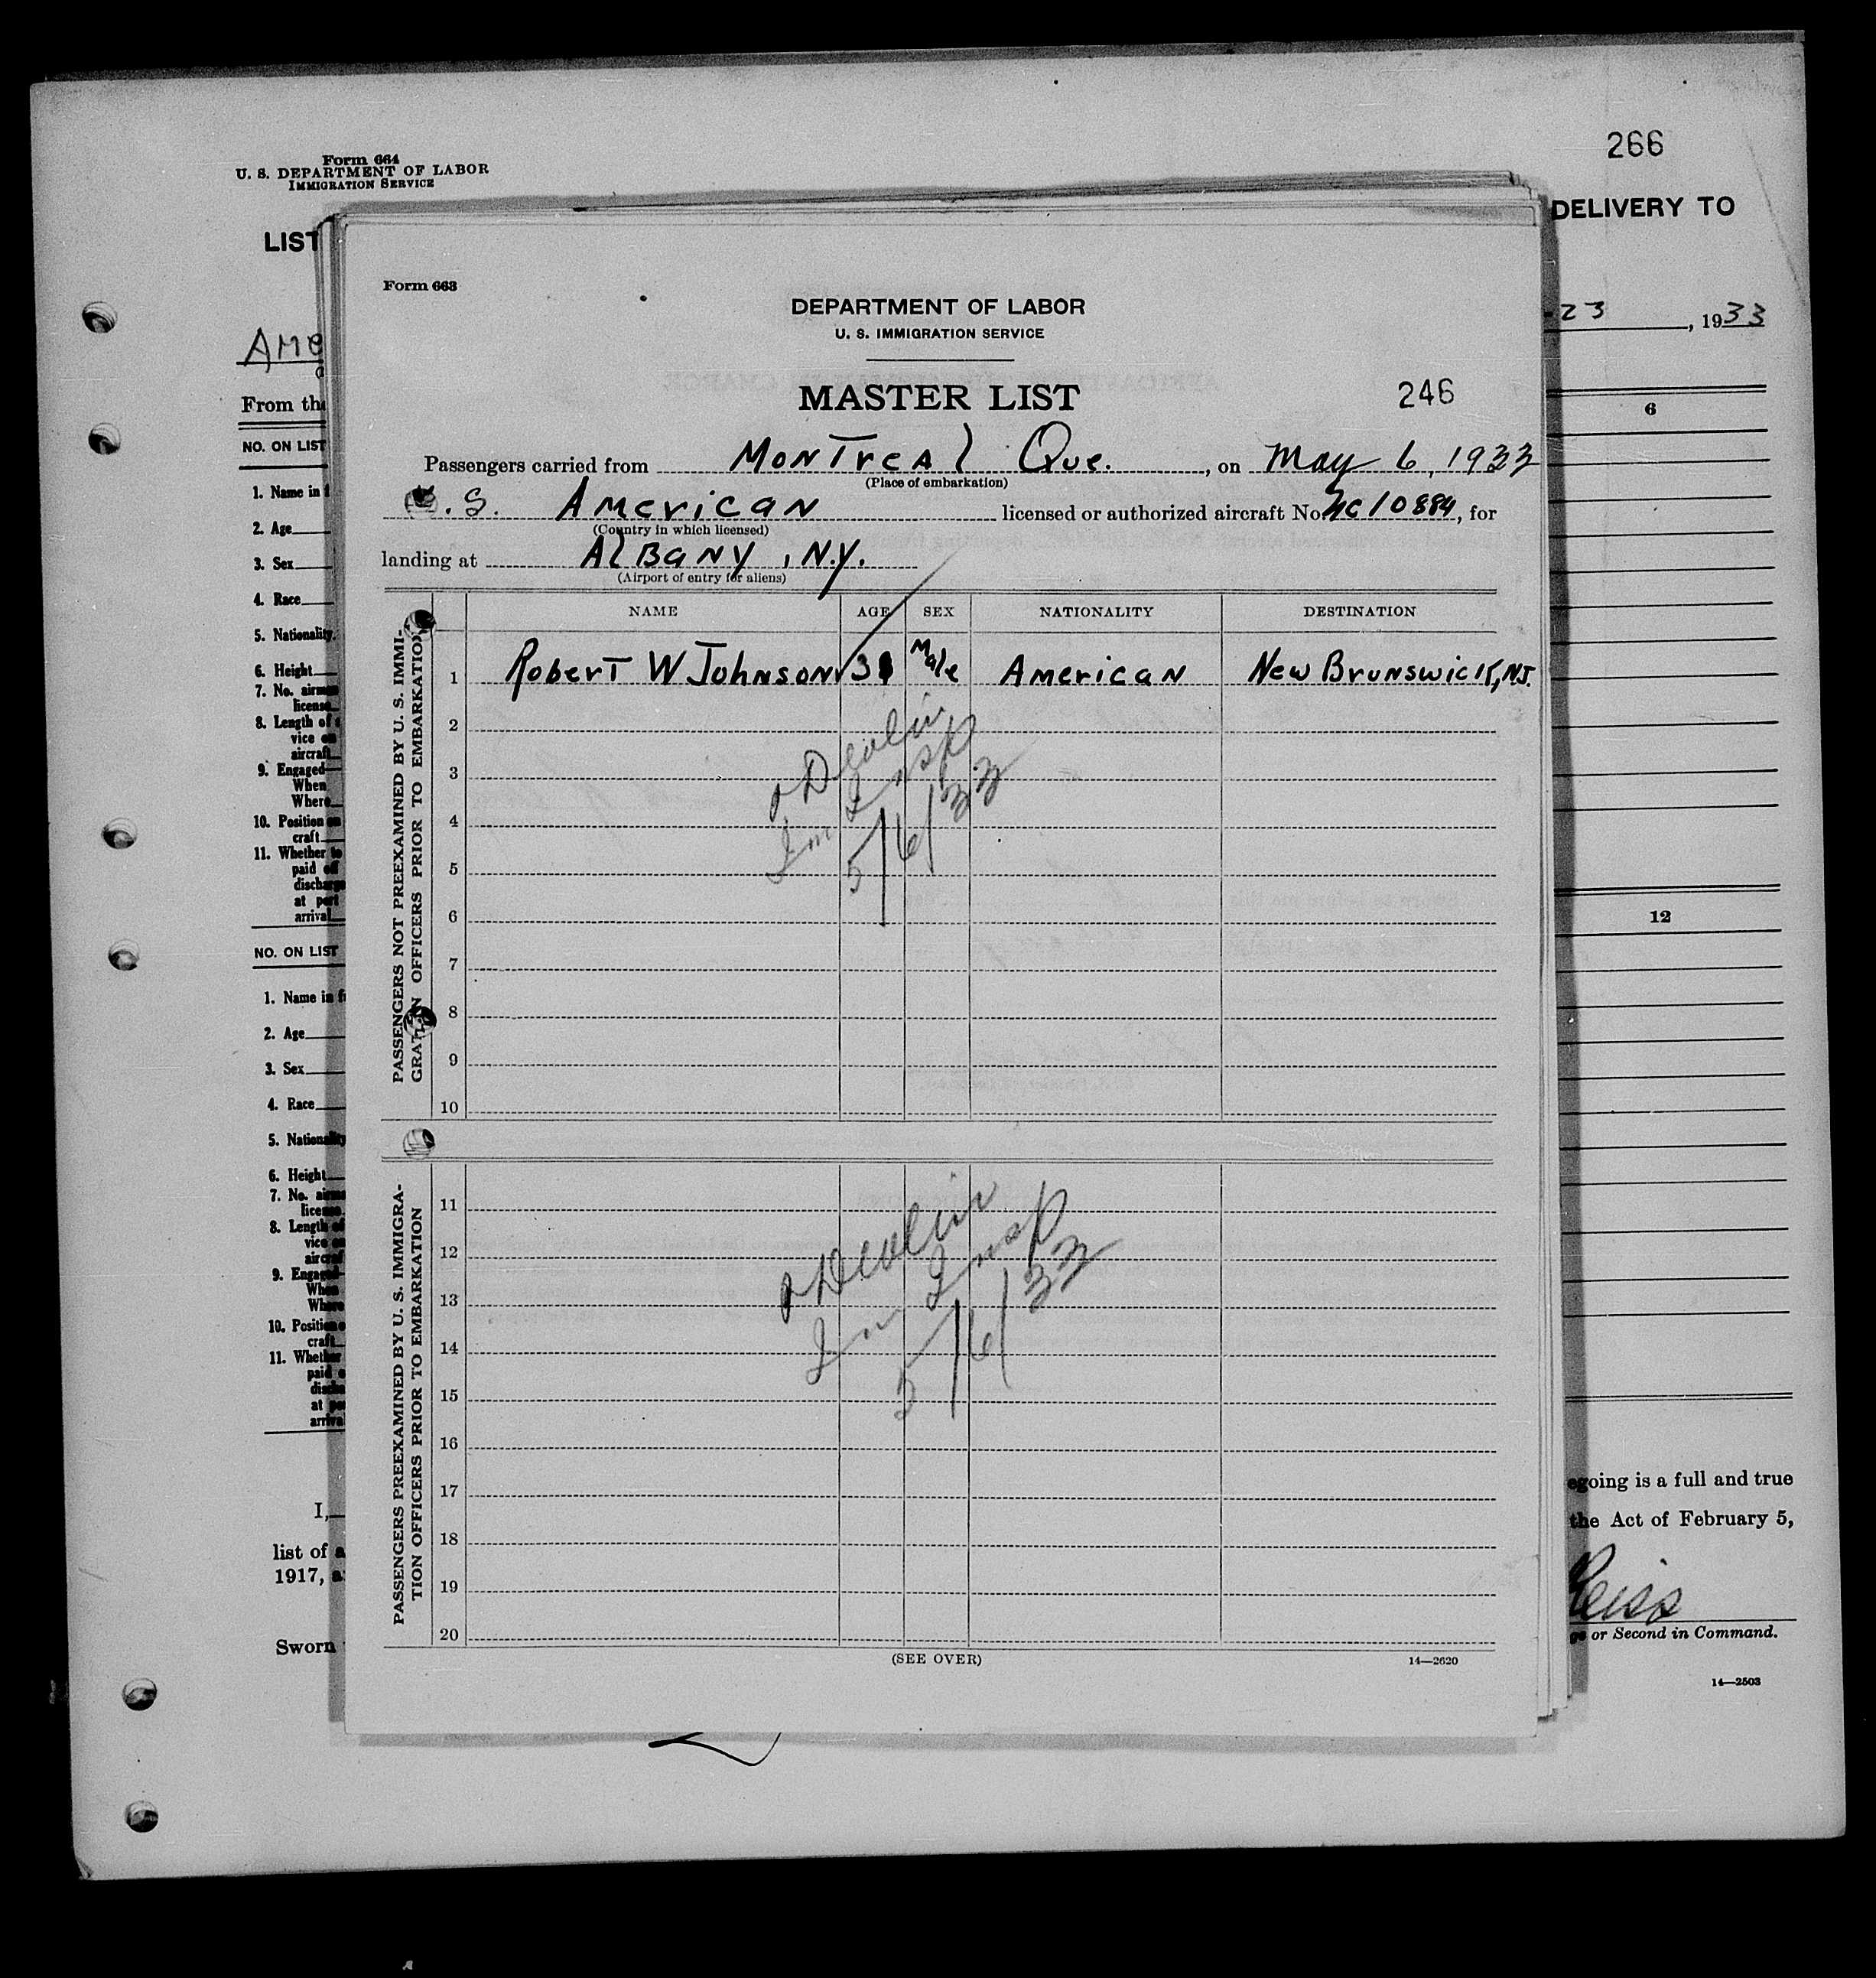 Form 664
U. S. DEPARTMENT OF LABOR
IMMIGRATION SERVICE
266
LIST
DELIVERY TO
AME
23, 1933
From the
NO. ON LIST
6
1. Name in f
2. Age
3. Sex
4. Race
5. Nationality
6. Height
7. No. airman
license
8. Length of
vice
aircraft
9. Engaged
When
Where
10. Position
craft
11. Whether to
paid
discharge
at port
arrival
12
NO. ON LIST
1. Name in f
2. Age
3. Sex
4. Race
5. Nationality
6. Height
7. No.
license
8. Length of
vice
aircraf
9. Engage
When
Where
10. Position
craft
11. Whether
paid
at
arrival
I,
list of
1917,
Sworn
egoing is a full and true
the Act of February 5,
Reiss
or Second in Command.
14—2503
Form 663
DEPARTMENT OF LABOR
U. S. IMMIGRATION SERVICE
MASTER LIST
246
Passengers carried from Montreal Que., on May 6, 1933
(Place of embarkation)
.S. American licensed or authorized aircraft No. NC10884, for
(Country in which licensed)
landing at Albany, N.Y.
(Airport of entry for aliens)
NAME AGE SEX NATIONALITY DESTINATION
PASSENGERS NOT PREEXAMINED BY U. S. IMMI-
GRATION OFFICERS PRIOR TO EMBARKATION
1 Robert W Johnson Male American New Brunswick, N.J.
2
3
4
5
6
7
8
9
10
Devlin
Im Insp
5/6/33
PASSENGERS PREEXAMINED BY U. S. IMMIGRA-
TION OFFICERS PRIOR TO EMBARKATION
11
12
13
14
15
16
17
18
19
20
Devlin
Im Insp
5/6/33
(SEE OVER)
14—2620